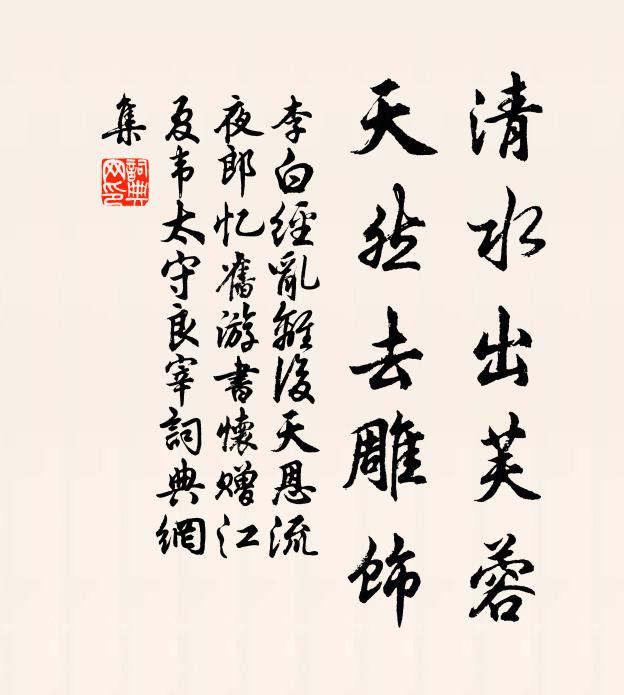 清水出芙蓉
天然去雕饰
李白經亂離後天恩流
夜郎忆舊游書懷赠江
夏韦太守良宰詞典網
集
詞典網印